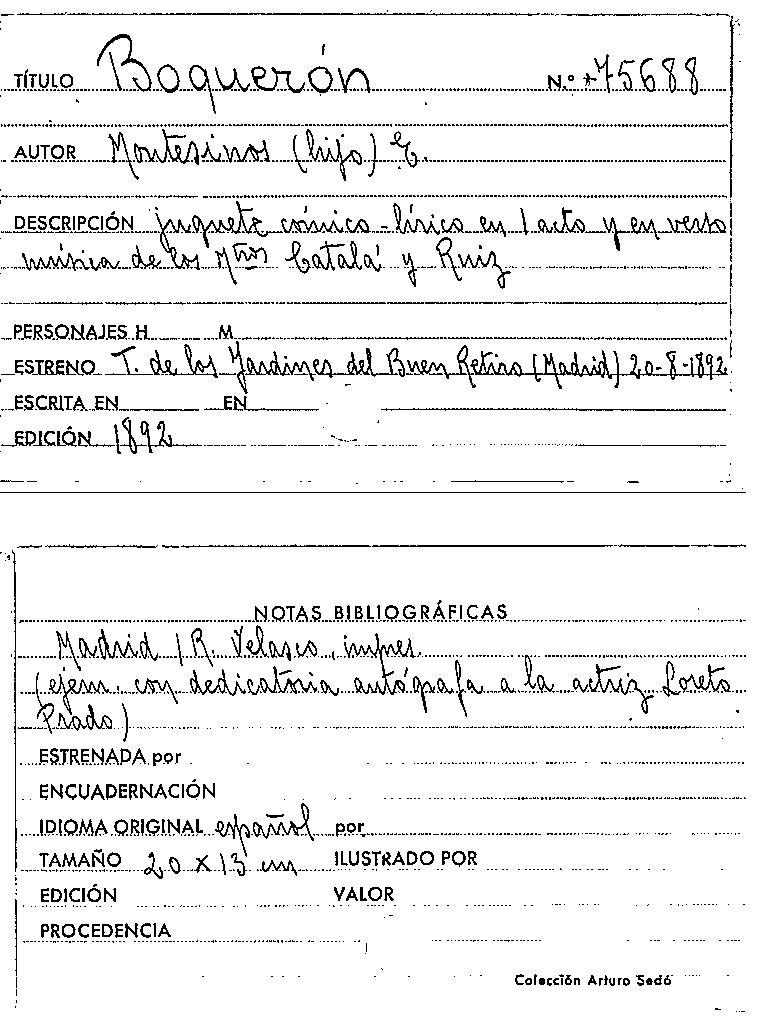 TÍTULO Boquerón N.º 75688
AUTOR Montesinos (hijo) E.
DESCRIPCIÓN juguete cómico-lírico en 1 acto y en verso
música de los Mtros Catalá y Ruiz
PERSONAJES H M
ESTRENO T. de los Jardines del Buen Retiro (Madrid) 20-8-1892
ESCRITA EN EN
EDICIÓN 1892
NOTAS BIBLIOGRÁFICAS
Madrid / R. Velasco, impres.
(ejem. con dedicatoria autógrafa a la actriz Loreto
Prado)
ESTRENADA por
ENCUADERNACIÓN
IDIOMA ORIGINAL español por
TAMAÑO 20 x 13 cm ILUSTRADO POR
EDICIÓN VALOR
PROCEDENCIA
Colección Arturo Sedó